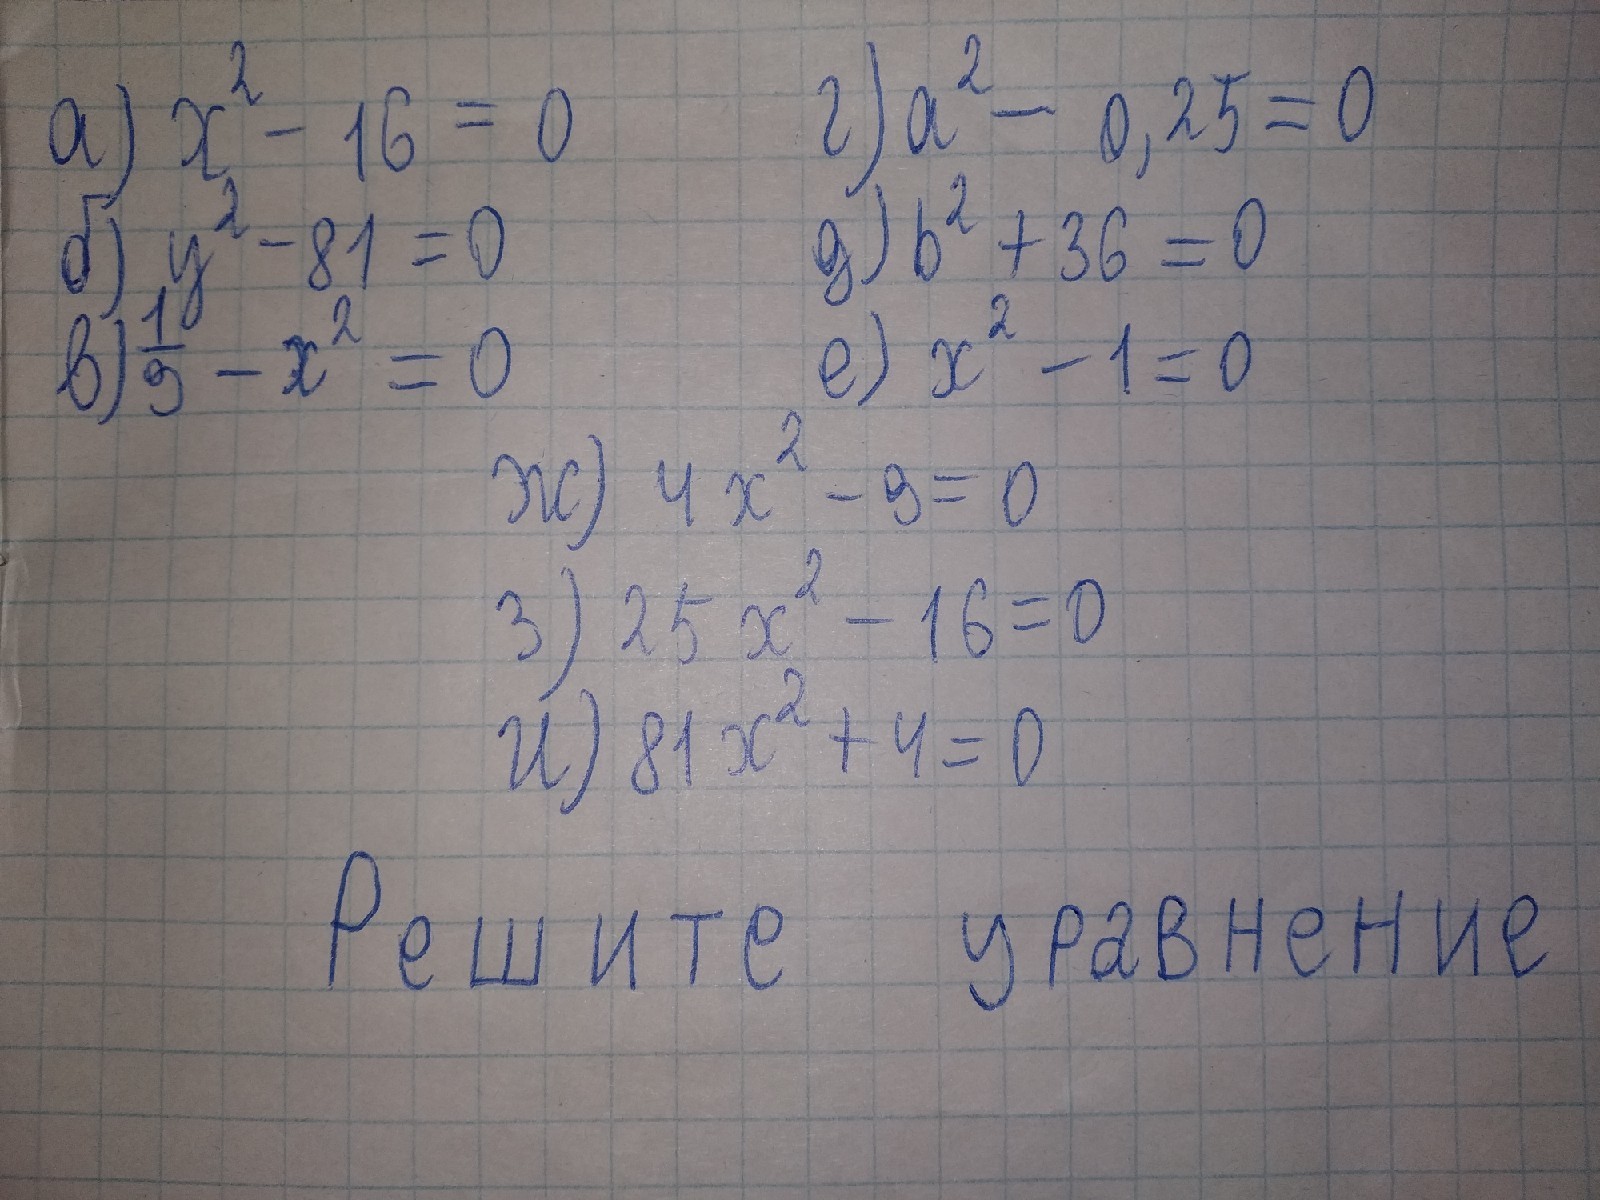 а) x² - 16 = 0 г) a² - 0,25 = 0
б) y² - 81 = 0 д) b² + 36 = 0
в) 1/9 - x² = 0 е) x² - 1 = 0
ж) 4x² - 9 = 0
з) 25x² - 16 = 0
и) 81x² + 4 = 0
Решите уравнение